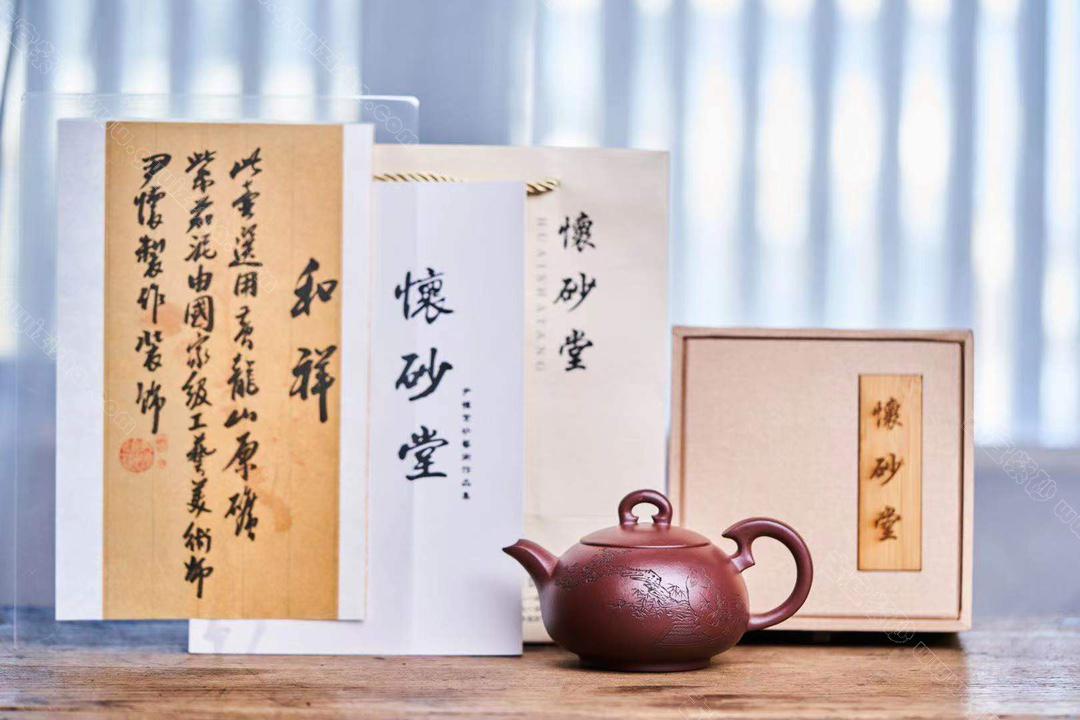 和祥
此壺選用黃龍山原礦
紫茄泥由國家级工藝美術師
尹懷製作裝飾
懷砂堂
懷砂堂
HUAISHATANG
懷砂堂